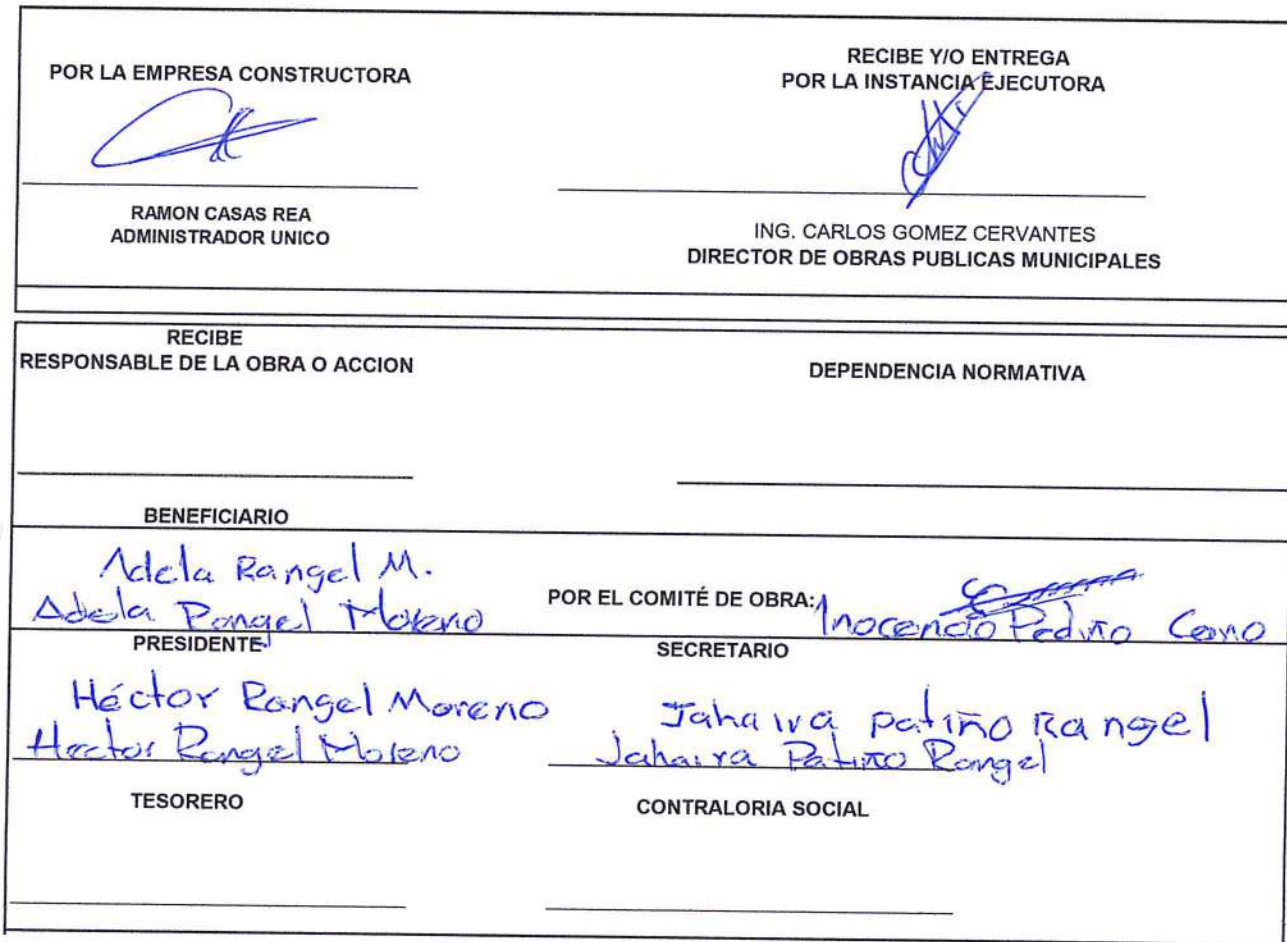 POR LA EMPRESA CONSTRUCTORA
RAMON CASAS REA
ADMINISTRADOR UNICO
RECIBE Y/O ENTREGA
POR LA INSTANCIA EJECUTORA
ING. CARLOS GOMEZ CERVANTES
DIRECTOR DE OBRAS PUBLICAS MUNICIPALES
RECIBE
RESPONSABLE DE LA OBRA O ACCION
DEPENDENCIA NORMATIVA
BENEFICIARIO
Adela Rangel M.
Adela Rangel Moreno
POR EL COMITÉ DE OBRA:
Inocencio Cano
PRESIDENTE
SECRETARIO
Héctor Rangel Moreno
Hector Rangel Moreno
Jahaira patiño Rangel
Jahaira Patiño Rangel
TESORERO
CONTRALORIA SOCIAL